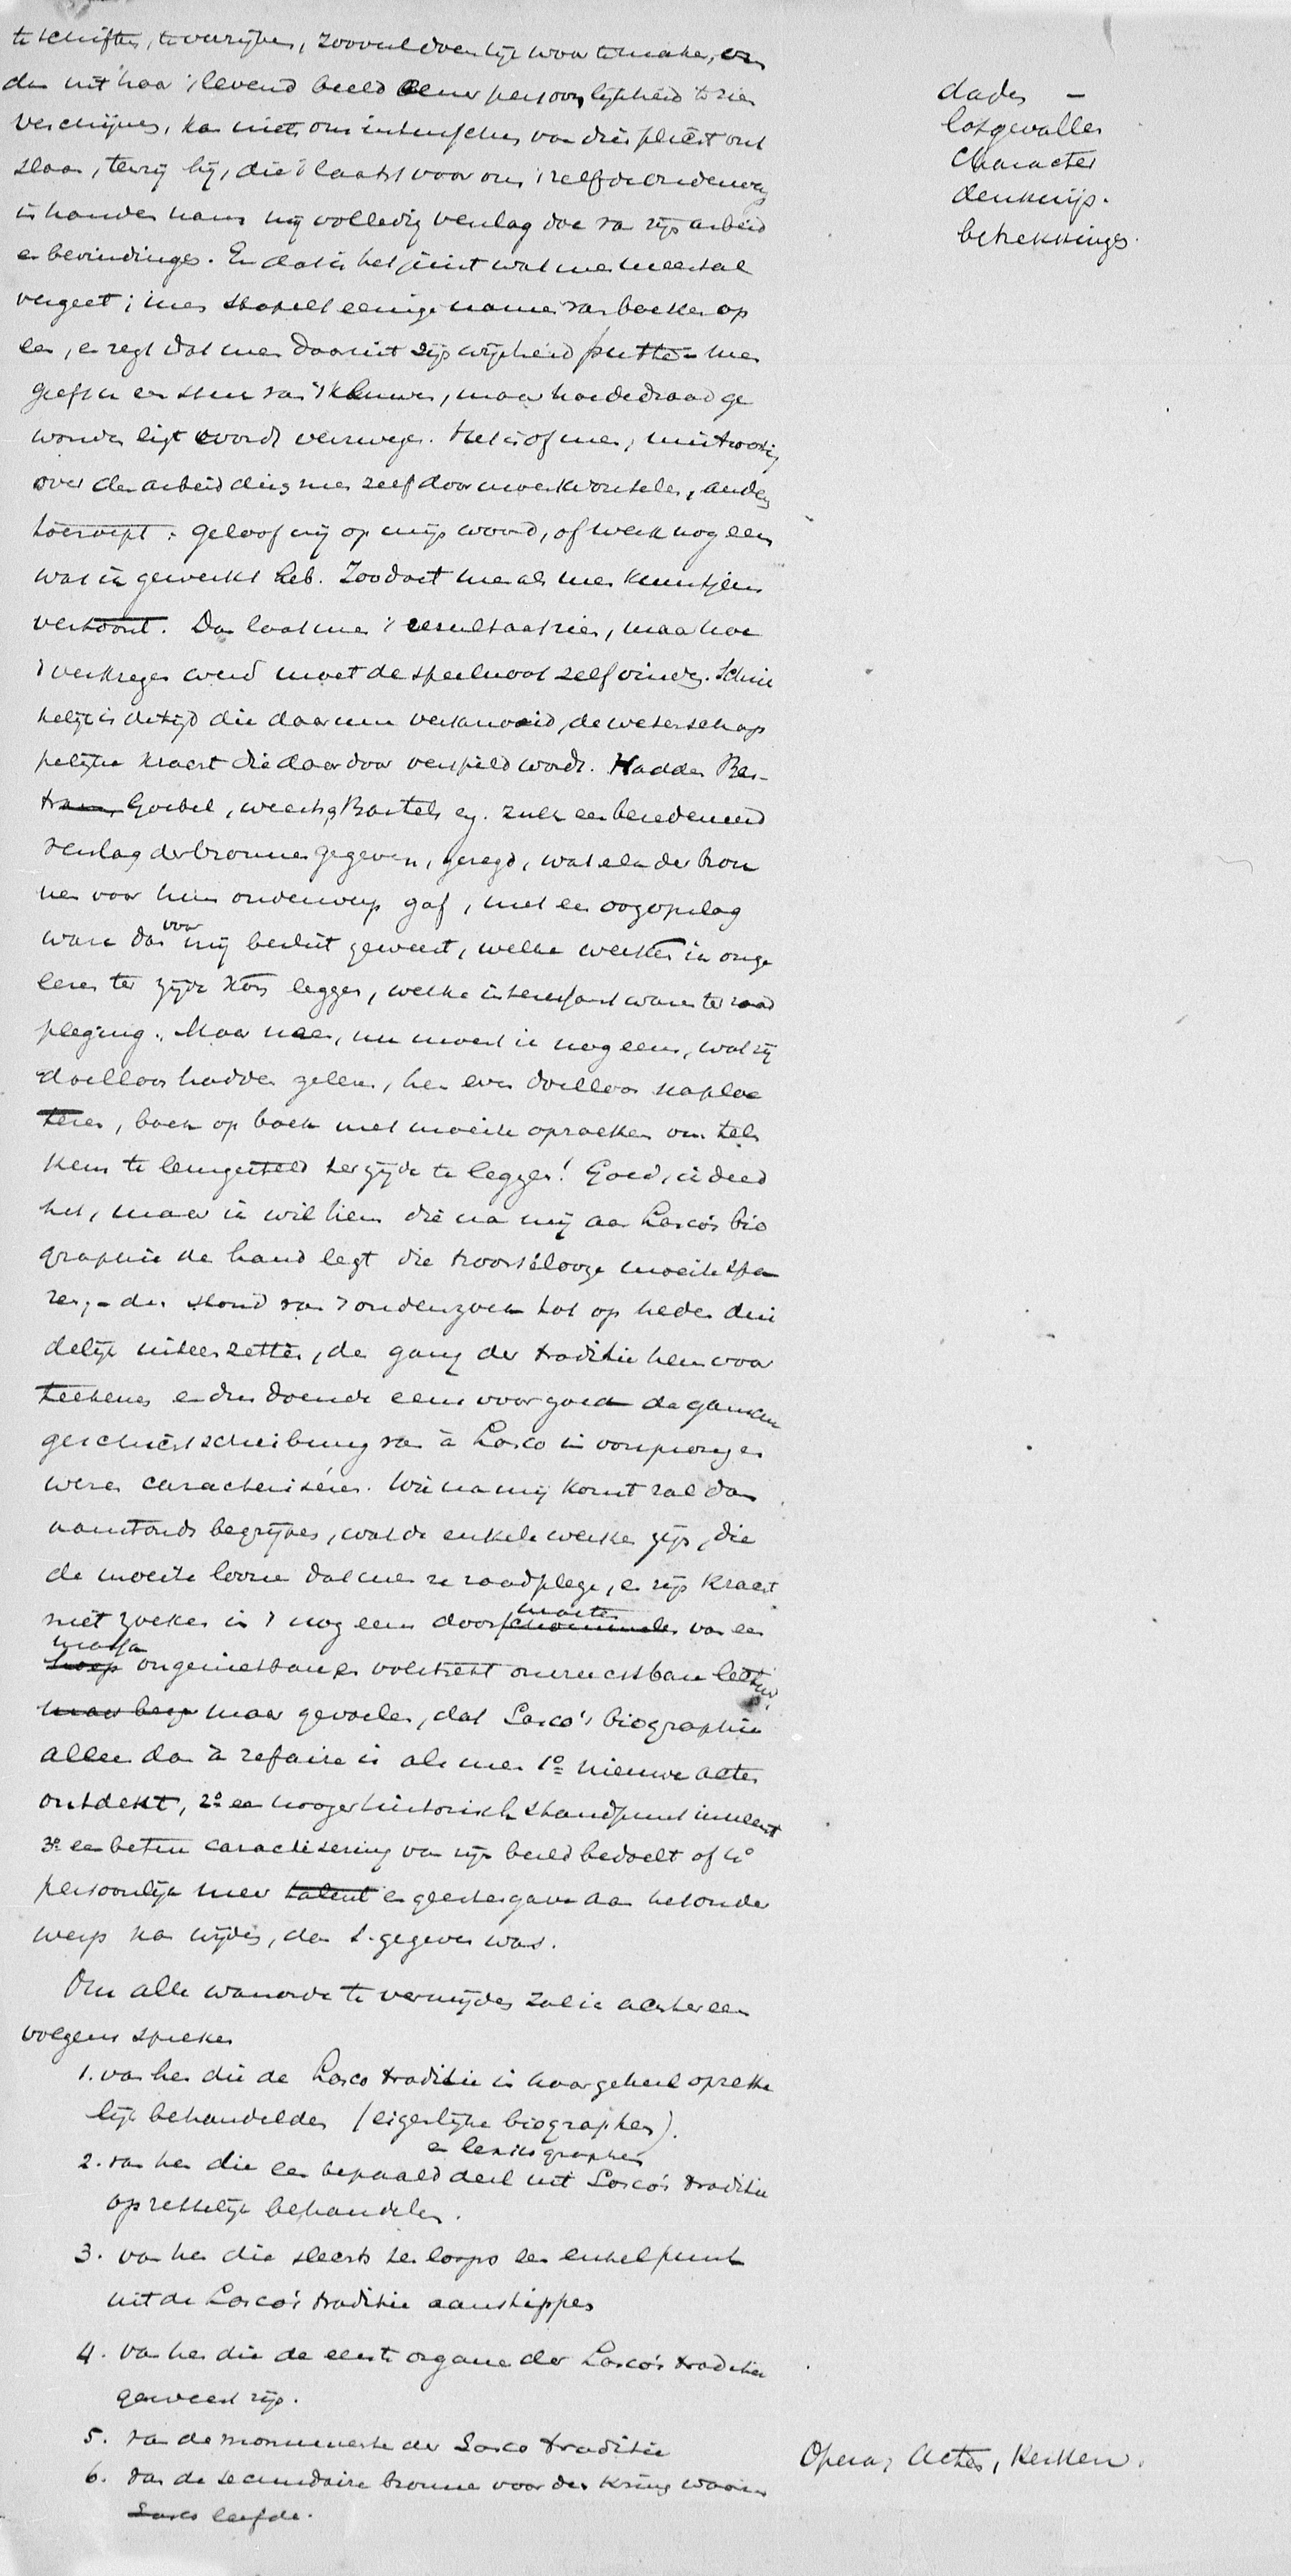 te schiften, te verrijken, zooveel doenlijk waar te maken, en
den uit haar 't levend beeld eener persoonlijkheid te zien
verschijnen, kan niets ons intusschen van dien plicht ont
slaan, tenzij hij, die 't laatst voor ons 'tzelfde onderwerp
in handen nam mij volledig verslag doe van zijn arbeid
en bevindingen. En dat is het juist wat men meestal
vergeet; men stapelt eenige namen van boeken op
een, en zegt dat men daaruit zijn wijsheid putte - men
geeft u een steen van 't kluwen, maar hoe de draad ge
wonden ligt wordt verzwegen. Het is of men,
over den arbeid dien men zelf doormoest worstelen, anderen
toeroept: geloof mij op mijn woord, of werk nog eens
wat ik gewerkt heb. Zoo doet men als men kunstjens
vertoont. Dan laat men 't resultaat zien, maar hoe
't verkregen werd moet de speelnoot zelf vinden. Schrik
kelijk is de tijd die daarmee verknoeid, de wetenschap
pelijke kracht die daardoor verspild wordt. Hadden Ber-
tram, Goebel, Bartels eg. zulk een beredeneerd
verslag der bronnen gegeven, gezegd, wat elk der bron
nen voor hun onderwerp gaf, met een oogopslag
ware dan voor mij beslist geweest, welke werken ik onge
lezen ter zijde kon leggen, welke interessant waren ter raad
pleging. Maar neen, nu moest ik nog eens, wat zij
doelloos hadden gelezen, hen even doelloos naploe
teren, boek op boek met moeite opzoeken om tel
kens te leurgesteld ter zijde te leggen! Goed, ik deed
het, maar ik wil hem die na mij aan Lasco's bio
graphie de hand legt die troostelooze moeite spa
ren, - den stand van 't onderzoek tot op heden dui
delijk uiteenzetten, de gang der traditie hem voor
teekenen en dus doende eens voor goed de gansche
geschichtschreibung van à Lasco in oorsprong en
wezen caracteriseren. Wie na mij komt zal dan
aanstonds begrijpen, wat de enkele werken zijn, die
de moeite loone dat men ze raadplege, en zijn kracht
niet zoeken in 't nog eens door van een
massa ongenietbare volstrekt onvruchtbare lectuur,
maar gevoelen, dat Lasco's biographie
alleen dan à refaire is als men 1º nieuwe acten
ontdekt, 2º een hooger historisch standpunt inneemt
3º een betere caracterisering van zijn beeld bedoelt of 4º
persoonlijk meer talent en geestesgave aan het onder
werp kan wijden, dan S. gegeven was.
Om alle wanorde te vermijden zal ik achtereen
volgens spreken
1. van hen die de Lasco traditie in haar geheel opzette
lijk behandelden (eigenlijke biographen).
en lexicographen
2. van hen die een bepaald deel uit Lasco's traditie
opzettelijk behandelen.
3. van hen die slechts ter loops een enkel punt
uit de Lasco's traditie aanstippen
4. van hen die de eerste organe der Lasco's traditie
geweest zijn.
5. van de monumenten der Lasco traditie
6. van de secundaire bronnen voor den kring waarin
Lasco leefde.
daden -
lotgevallen
Character
denkwijs.
betrekkingen.
Opera, Acten, Kerken.